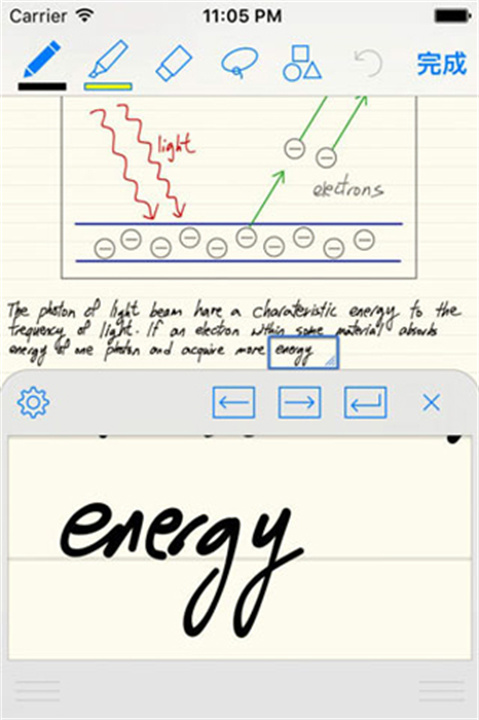 Carrier 11:05 PM
完成
light
electrons
The photon of light beam have a charateristic energy to the
frequency of light. If an electron within some material absorbs
energy of one photon and acquire more energy
energy